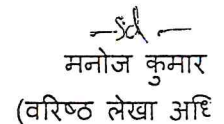 -sd-
मनोज कुमार
(वरिष्ठ लेखा अधि